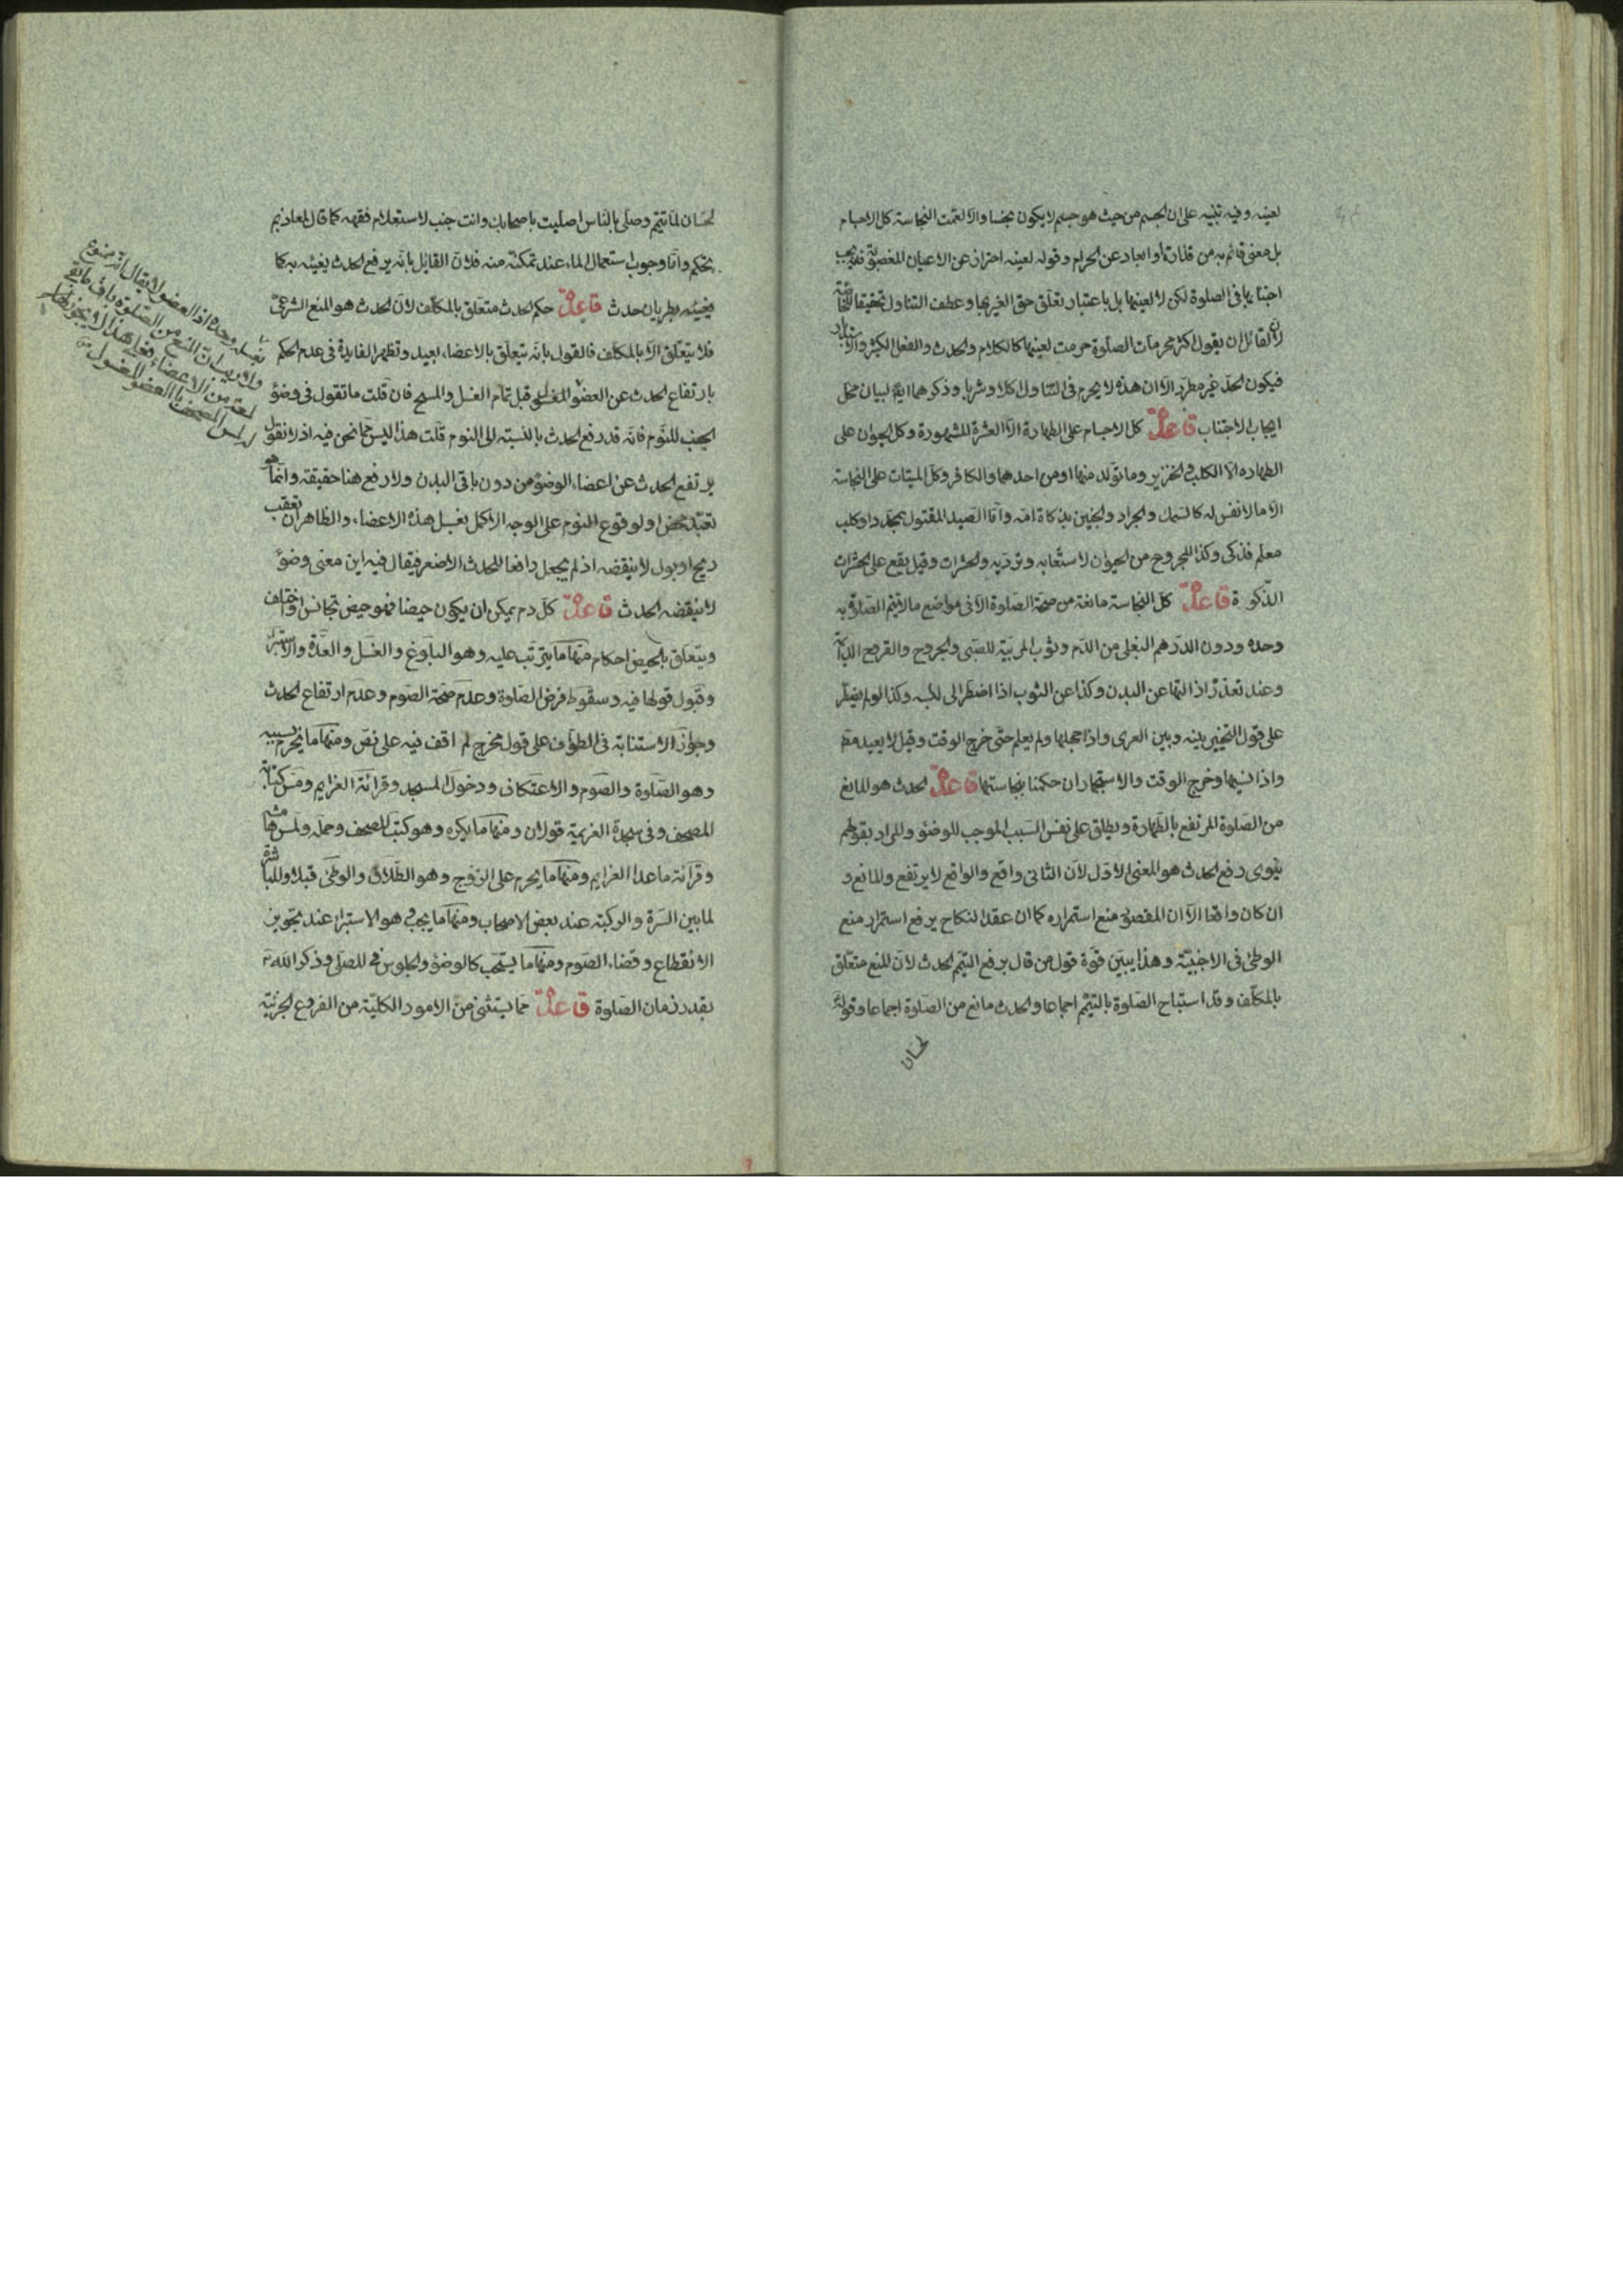 لعينه وفيه تنبيه على ان الجسم من حيث هو جسم لا يكون نجسا والا لعمت النجاسة كل الاجسام
بل معنى قائم به من قذارة او ابعاد عن الحرام وقوله لعينه احتراز عن الاعيان المغصوبة فانه يجب
اجتنابها في الصلوة لكن لا لعينها بل باعتبار تعلق حق الغير بها وعطف التناول تحقيقا للخاصة
لان لقائل ان يقول اكثر محرمات الصلوة حرمت لعينها كالكلام والحدث والفعل الكثير والاستدبار
فيكون الحد غير مطرد الا ان هذه لا يحرم في التناول اكلا وشربا وذكرهما ايضا لبيان محل
ايجاب الاجتناب قاعدة كل الاجسام على الطهارة الا العشرة المشهورة وكل الحيوان على
الطهاره الا الكلب والخنزير وما تولد منهما او من احدهما والكافر وكل الميتات على النجاسة
الا ما لا نفس له كالسمك والجراد والجنين بذكاة امه واما الصيد المقتول بمحدد او كلب
معلم فذكى وكذا المجروح من الحيوان لاستعصابه وترديه والحشرات وقيل يقع على الحشرات
الذكوة قاعدة كل النجاسة مانعة من صحة الصلوة الا في مواضع ما لا يتم الصلوة به
وحده ودون الدرهم البغلي من الدم وثوب المربية للصبي والجروح والقروح الدامية
وعند تعذر ازالتها عن البدن وكذا عن الثوب اذا اضطر الى لبسه وكذا لو لم يضطر
على قول التخيير بينه وبين العرى واذا جهلها ولم يعلم حتى خرج الوقت وقيل لا يعيد مطلقا
واذا نسيها وخرج الوقت والاستجمار ان حكمنا بنجاستها قاعدة الحدث هو المانع
من الصلوة المرتفع بالطهارة ويطلق على نفس السبب الموجب للوضؤ والمراد بقولهم
ينوى رفع الحدث هو المعنى الاول لان الثاني واقع والواقع لا يرتفع والمانع و
ان كان واقعا الا ان المقصود منع استمراره كما ان عقد النكاح يرفع استمرار منع
الوطئ في الاجنبية وهذا يبين قوة قول من قال برفع التيمم الحدث لان المنع متعلق
بالمكلف وقد استباح الصلوة بالتيمم اجماعا والحدث مانع من الصلوة اجماعا وقوله
لحسان
لحسان لما تيمم وصلى بالناس اصليت باصحابك وانت جنب لاستعلام فقهه كما قال لمعاذ بم
تحكم واما وجوب استعمال الماء عند تمكنه منه فلان القايل بانه يرفع الحدث يغيئه به كما
يغيئه بطريان حدث قاعدة حكم الحدث متعلق بالمكلف لان الحدث هو المنع الشرعي
فلا يتعلق الا بالمكلف فالقول بانه يتعلق بالاعضاء بعيد وتظهر الفايدة في عدم الحكم
بارتفاع الحدث عن العضو المغسول قبل تمام الغسل والمسح فان قلت ما تقول في وضؤ
الجنب للنوم فانه قد رفع الحدث بالنسبة الى النوم قلت هذا ليس مما نحن فيه اذ لا نقول
يرتفع الحدث عن اعضاء الوضؤ من دون باقى البدن ولا رفع هنا حقيقة وانما هو
تعبد محض او لوقوع النوم على الوجه الاكمل بغسل هذه الاعضاء والظاهر ان تعقب
ريح او بول لا ينقضه اذ لم يجعل رافعا للحدث الاصغر فيقال فيه اين معنى وضؤ
لا ينقضه الحدث قاعدة كل دم يمكن ان يكون حيضا فهو حيض تجانس او اختلف
ويتعلق بالحيض احكام منها ما يترتب عليه وهو البلوغ والغسل والعدة والاستبراء
وقبول قولها فيه وسقوط فرض الصلوة وعدم صحة الصوم وعدم ارتفاع الحدث
وجواز الاستنابة في الطواف على قول مخرج لم اقف فيه على نص ومنها ما يحرم بسببه
وهو الصلوة والصوم والاعتكاف ودخول المسجد وقرائة العزايم ومس كتابة
المصحف وفي سجدة العزيمة قولان ومنها ما يكره وهو كتب المصحف وحمله ولمس هامشه
وقرائة ما عدا العزايم ومنها ما يحرم على الزوج وهو الطلاق والوطئ قبلا والمباشرة
لما بين السرة والركبة عند بعض الاصحاب ومنها ما يجب وهو الاستبراء عند تجويز
الانقطاع وقضاء الصوم ومنها ما يستحب كالوضؤ والجلوس في المصلى وذكر الله تعالى
بقدر زمان الصلوة قاعدة مما يستثنى من الامور الكلية من الفروع الجزئية
بغسله وحده اذ العضو لا يقال انه ممنوع
ولا ريب ان المنع من الصلوة باق ما بقى
لمعة من الاعضاء فعلى هذا لا يجوز
لمس المصحف بالعضو المغسول